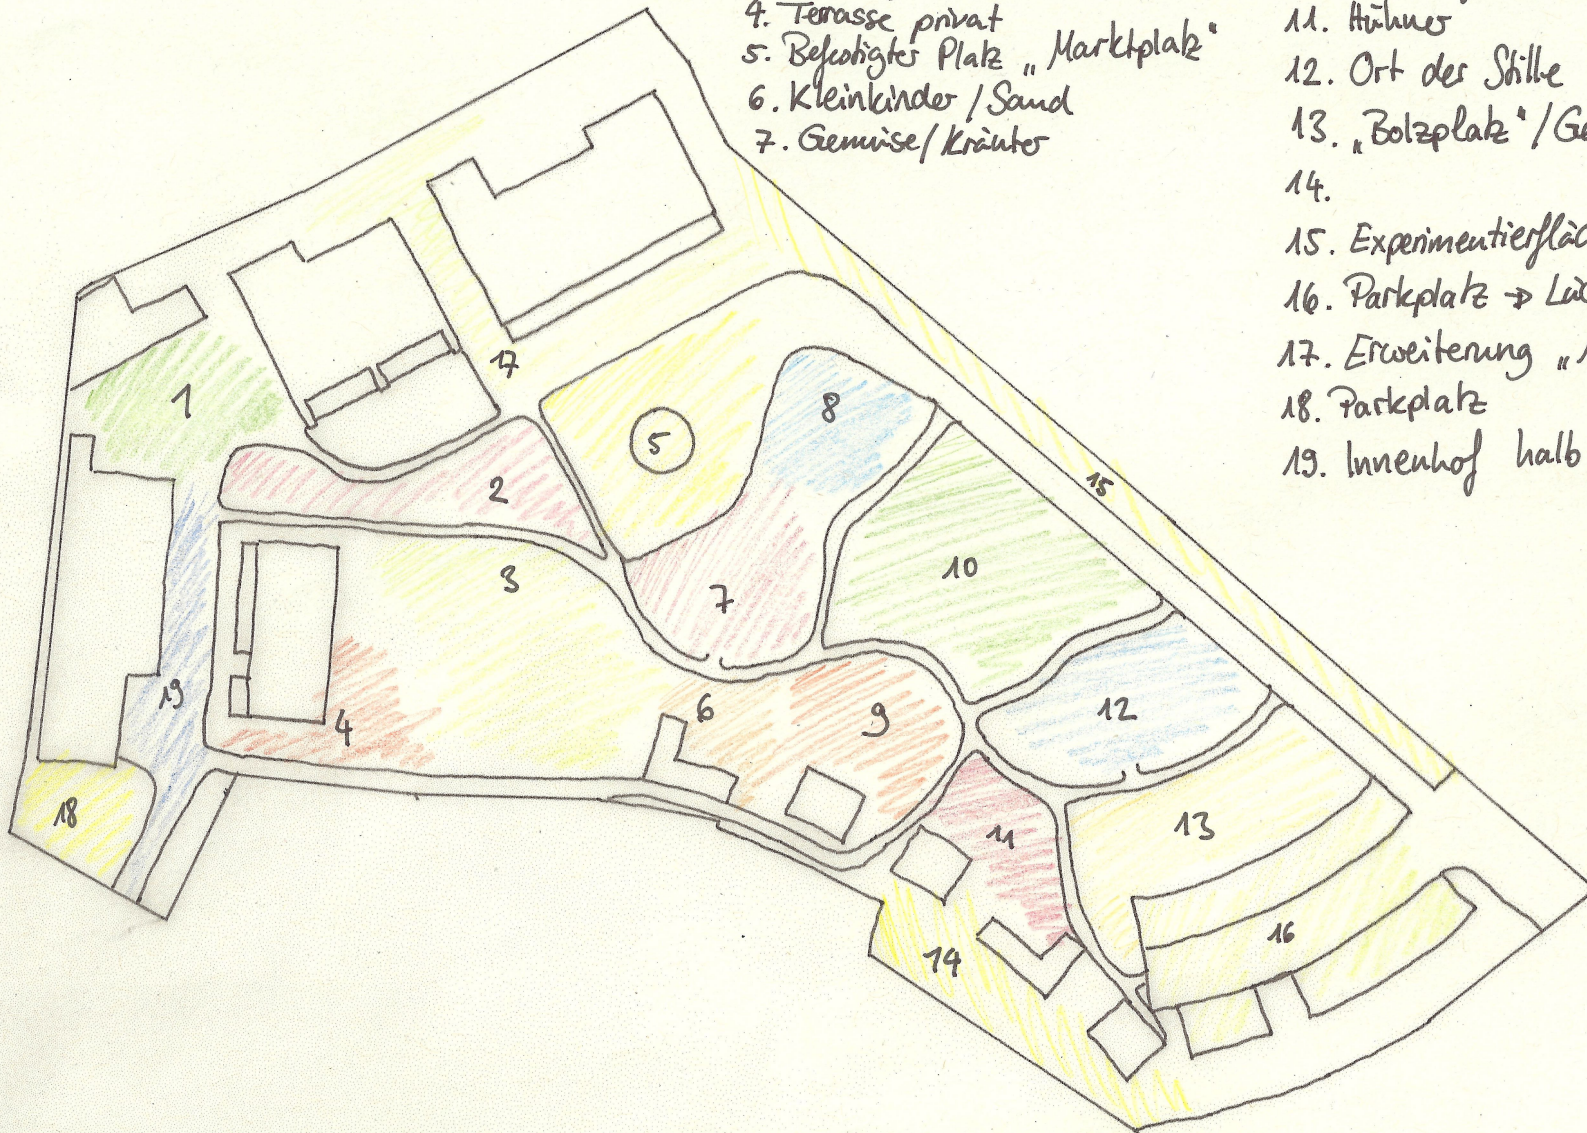 4. Terrasse privat
5. Befestigter Platz „Marktplatz"
6. Kleinkinder/Sand
7. Gemüse/Kräuter
11. Hühner
12. Ort der Stille
13. „Bolzplatz"/Ge
14.
15. Experimentierfläc
16. Parkplatz → Lä
17. Erweiterung „1
18. Parkplatz
19. Innenhof halb
17
1
5
8
2
15
3
10
7
19
4
6
9
12
18
11
13
14
16